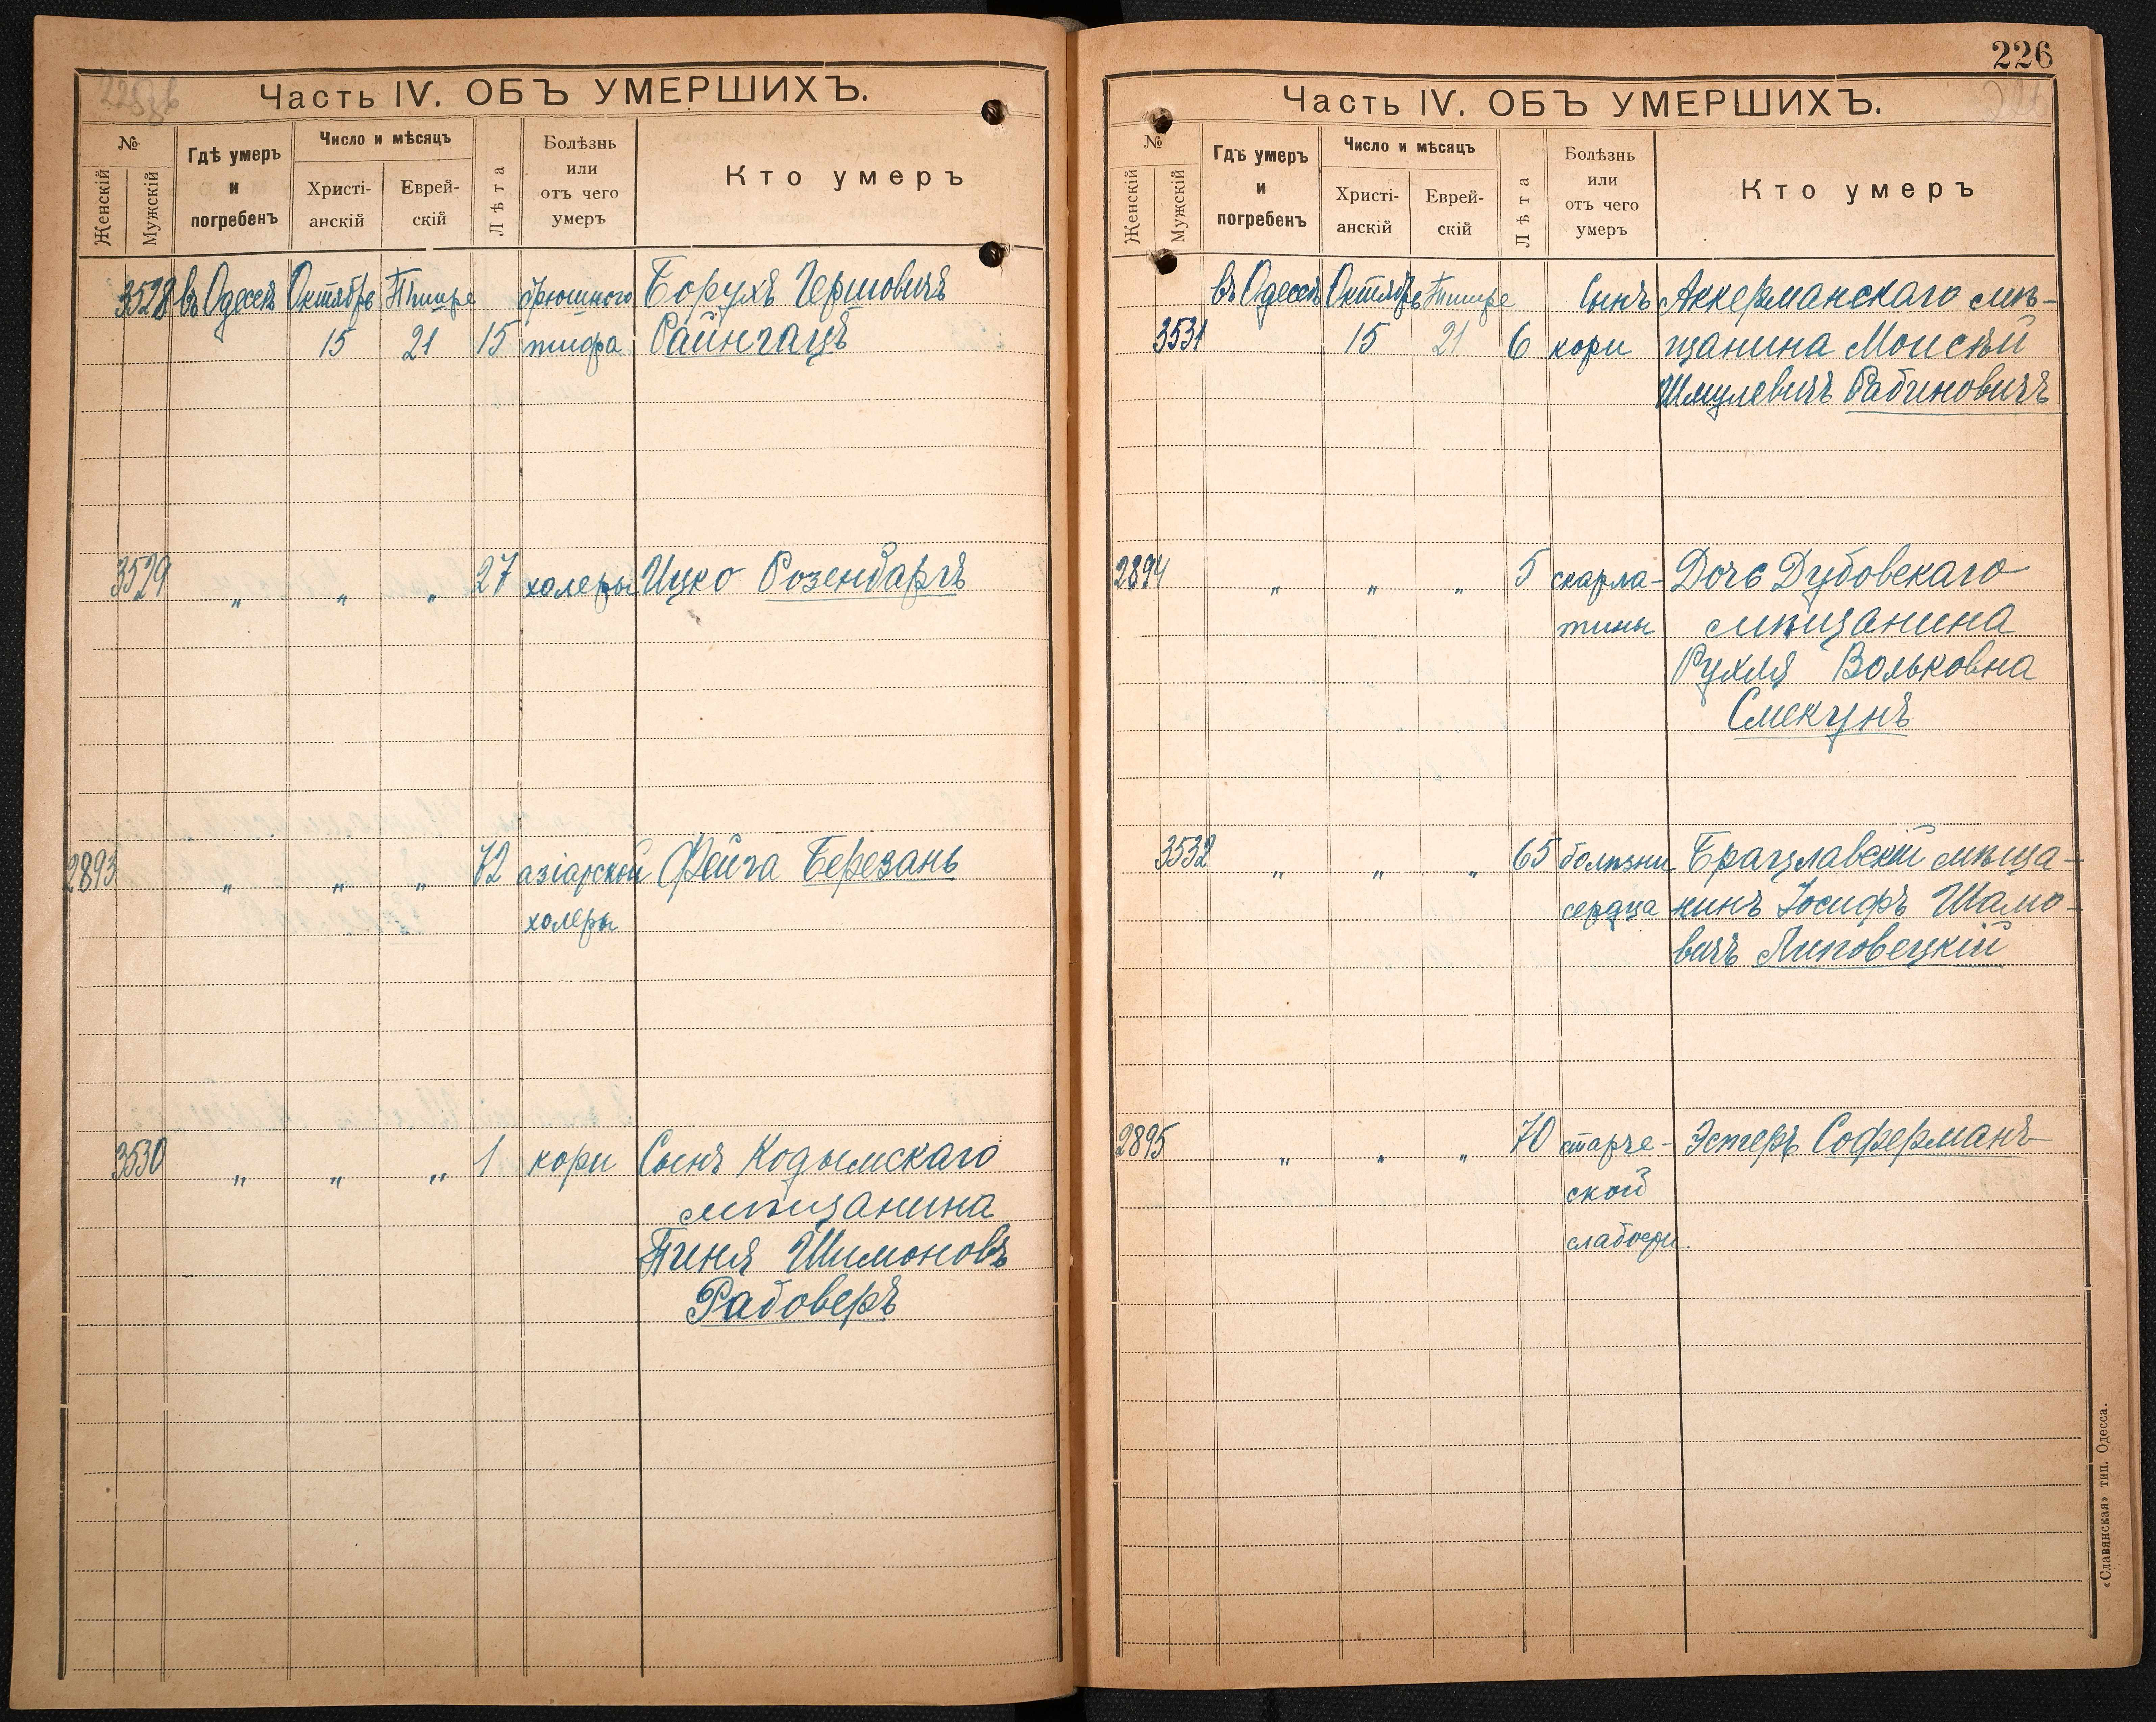 Часть IV. ОБЪ УМЕРШИХЪ.
№
Женскій
Мужскій
Гдѣ умеръ
и
погребенъ
Число и мѣсяцъ
Христі-
анскій
Еврей-
скій
Лѣта
Болѣзнь
или
отъ чего
умеръ
Кто умеръ
3528 въ Одессѣ Октябрь Тишре брюшного Борухъ Гершовичъ
15 21 15 тифа Райнгацъ
3529 " " " 27 холеры Ицко Розенбаргъ
2893 " " " 72 азіарской Фейга Березань
холеры
3530 " " " 1 кори Сынъ Кодымскаго
мѣщанина
Пиня Шимоновъ
Рабоверъ
226
Часть IV. ОБЪ УМЕРШИХЪ.
№
Женскій
Мужскій
Гдѣ умеръ
и
погребенъ
Число и мѣсяцъ
Христі-
анскій
Еврей-
скій
Лѣта
Болѣзнь
или
отъ чего
умеръ
Кто умеръ
въ Одессѣ Октябрь Тишре Сынъ Аккерманскаго мѣ-
3531 15 21 6 кори щанина Моисѣй
Шмулевичъ Рабиновичъ
2894 " " " 5 скарла- Дочь Дубовскаго
тины мѣщанина
Рухля Вольковна
Смекунъ
3532 " " " 65 болѣзни Брацлавскій мѣща-
сердца нинъ Іосифъ Шамо-
вичъ Липовецкій
2895 " " " 70 старче- Эстеръ Соферманъ
ской
слабости.
«Славянская» тип. Одесса.